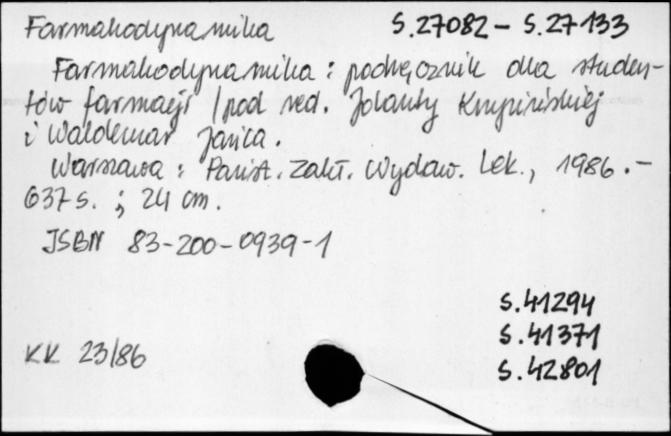 Farmakodynamika S.27082 - S.27133
Farmakodynamika : podręcznik dla studen-
tów farmacji / pod red. Jolanty Krupińskiej
i Waldemar Jańca.
Warszawa : Państ. Zakł. Wydaw. Lek., 1986. -
637 s. ; 24 cm.
ISBN 83-200-0939-1
S.41294
S.41371
KK 23/86
S.42801